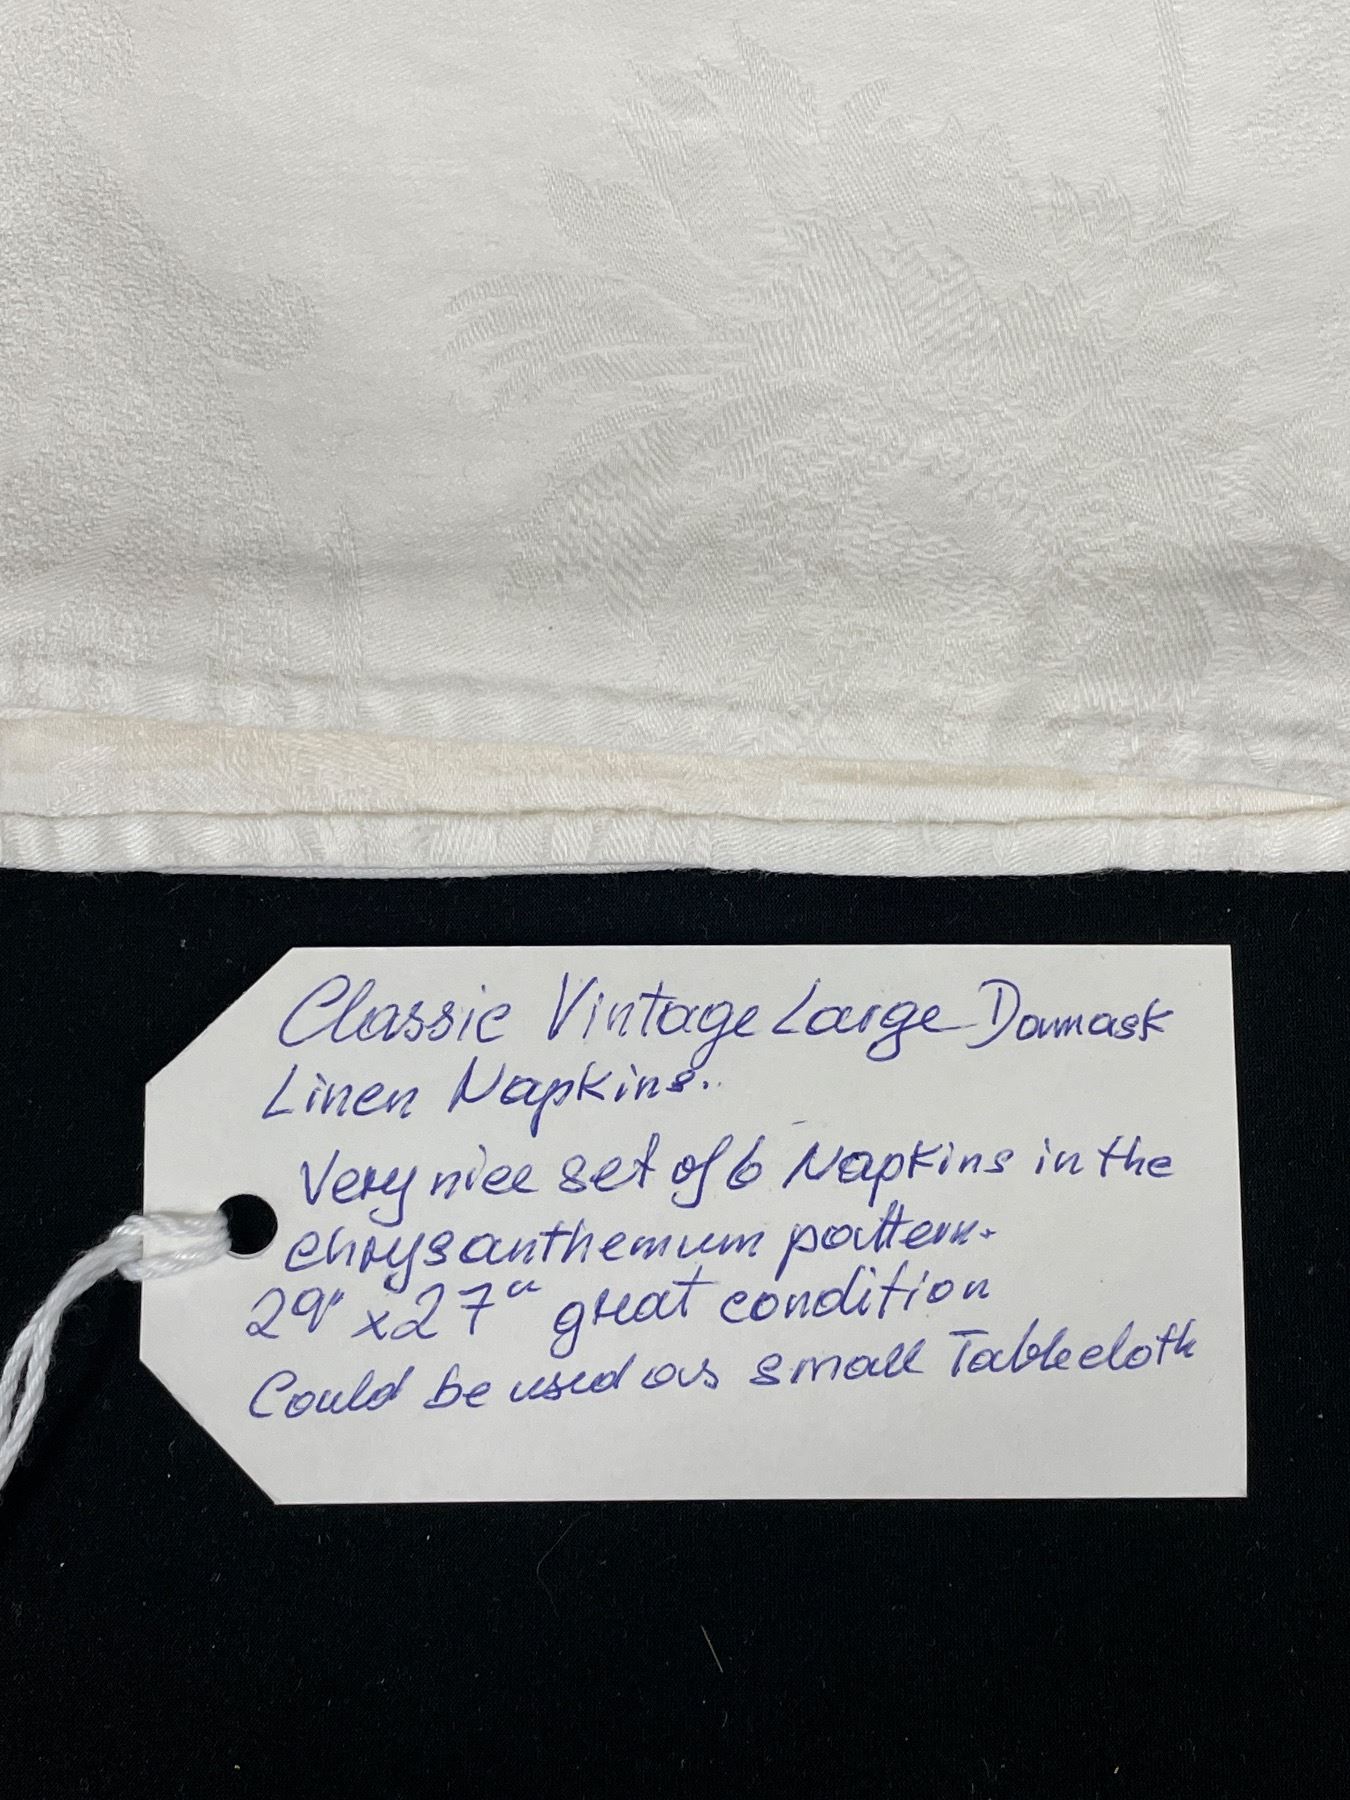 Classic Vintage Large Damask
Linen Napkins.
Very nice set of 6 Napkins in the
chrysanthemum pattern.
29" x 27" great condition
Could be used as small Tablecloth